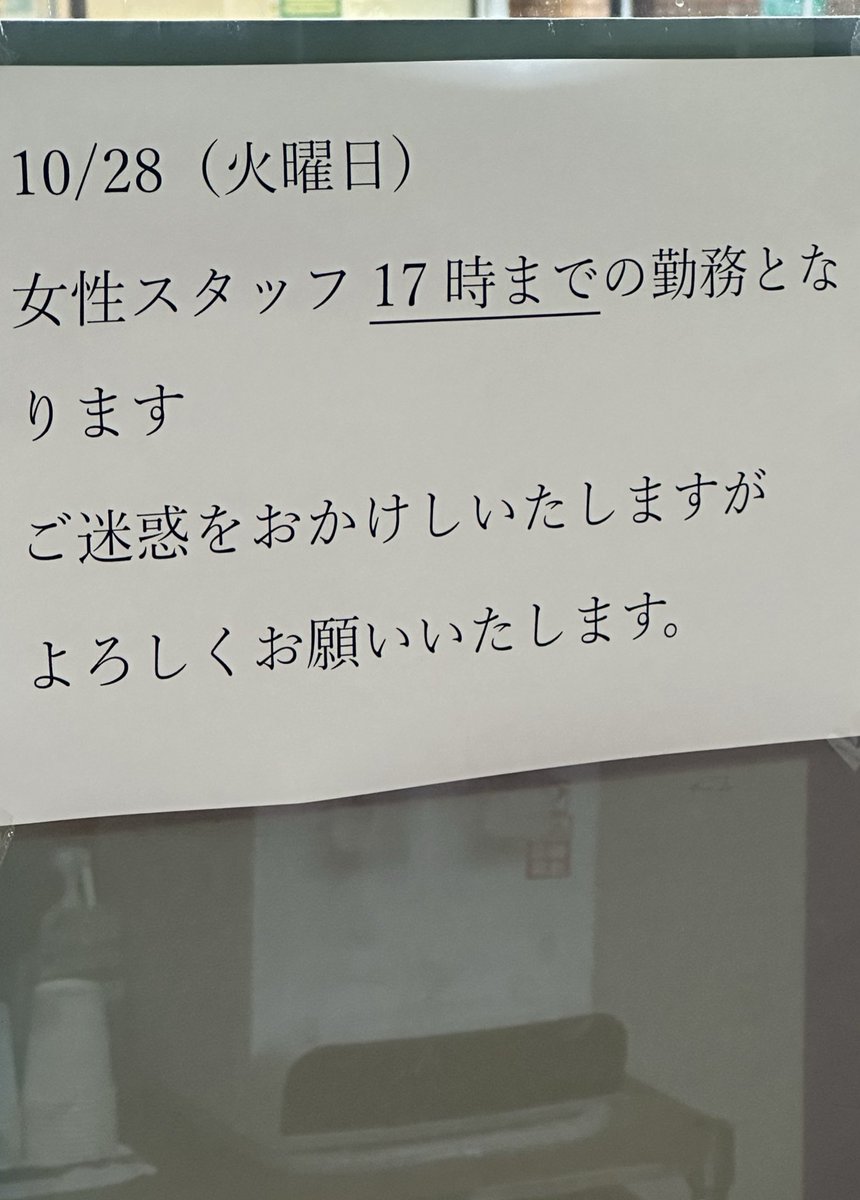 10/28（火曜日）
女性スタッフ 17 時までの勤務とな
ります
ご迷惑をおかけしいたしますが
よろしくお願いいたします。